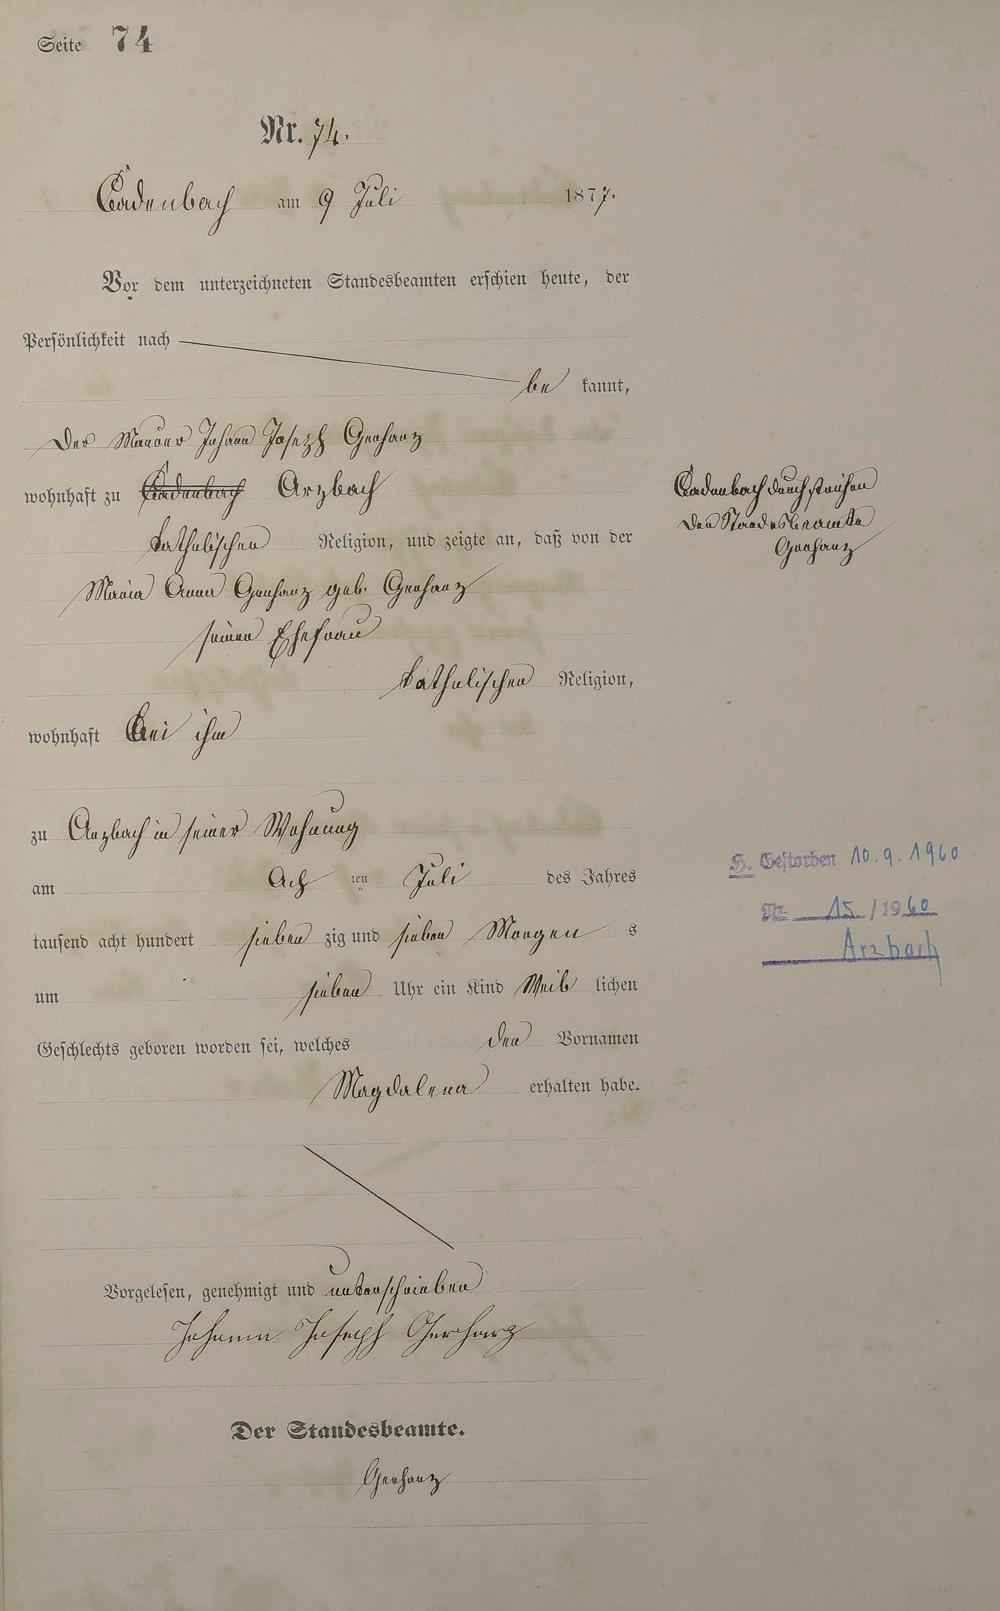 Seite 74
Nr. 74.
Cadenbach am 9 Juli 1877.
Vor dem unterzeichneten Standesbeamten erschien heute, der
Persönlichkeit nach
be kannt,
der Maurer Johann Joseph Gerharz
wohnhaft zu Cadenbach Arzbach
katholischen Religion, und zeigte an, daß von der
Maria Anna Gerharz geb. Gerharz
seiner Ehefrau
katholischen Religion,
wohnhaft bei ihm
zu Arzbach in seiner Wohnung
am Ach ten Juli des Jahres
tausend acht hundert sieben zig und sieben Morgen s
um sieben Uhr ein Kind Weib lichen
Geschlechts geboren worden sei, welches den Vornamen
Magdalena erhalten habe.
Vorgelesen, genehmigt und unterschrieben
Johann Joseph Gerharz
Der Standesbeamte.
Gerharz
Cadenbach durchstrichen
Der Standesbeamte
Gerharz
H. Gestorben 10.9.1960
Nr. 15 / 1960
Arzbach